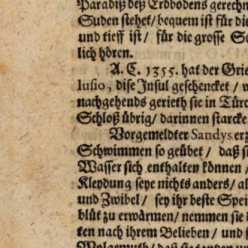 Paradiß deß Erdbodens gerechn
Suden siehet/ bequem ist für die
und tieff ist/ für die grosse
lich hören.
A. C. 1355. hat der Grie
lusio, dise Insul geschencket/
nachgehends gerieth sie in Türc
Schloß übrig/ darinnen starcke
Vorgemeldter Sandys er
Schwimmen so geübet/ daß
Wasser sich enthalten können
Kleydung seye nichts anders/
und Zwibel/ sey ihr beste Spei
blüt zu erwärmen/ nemmen sie
ken nach ihrem Belieben/ und